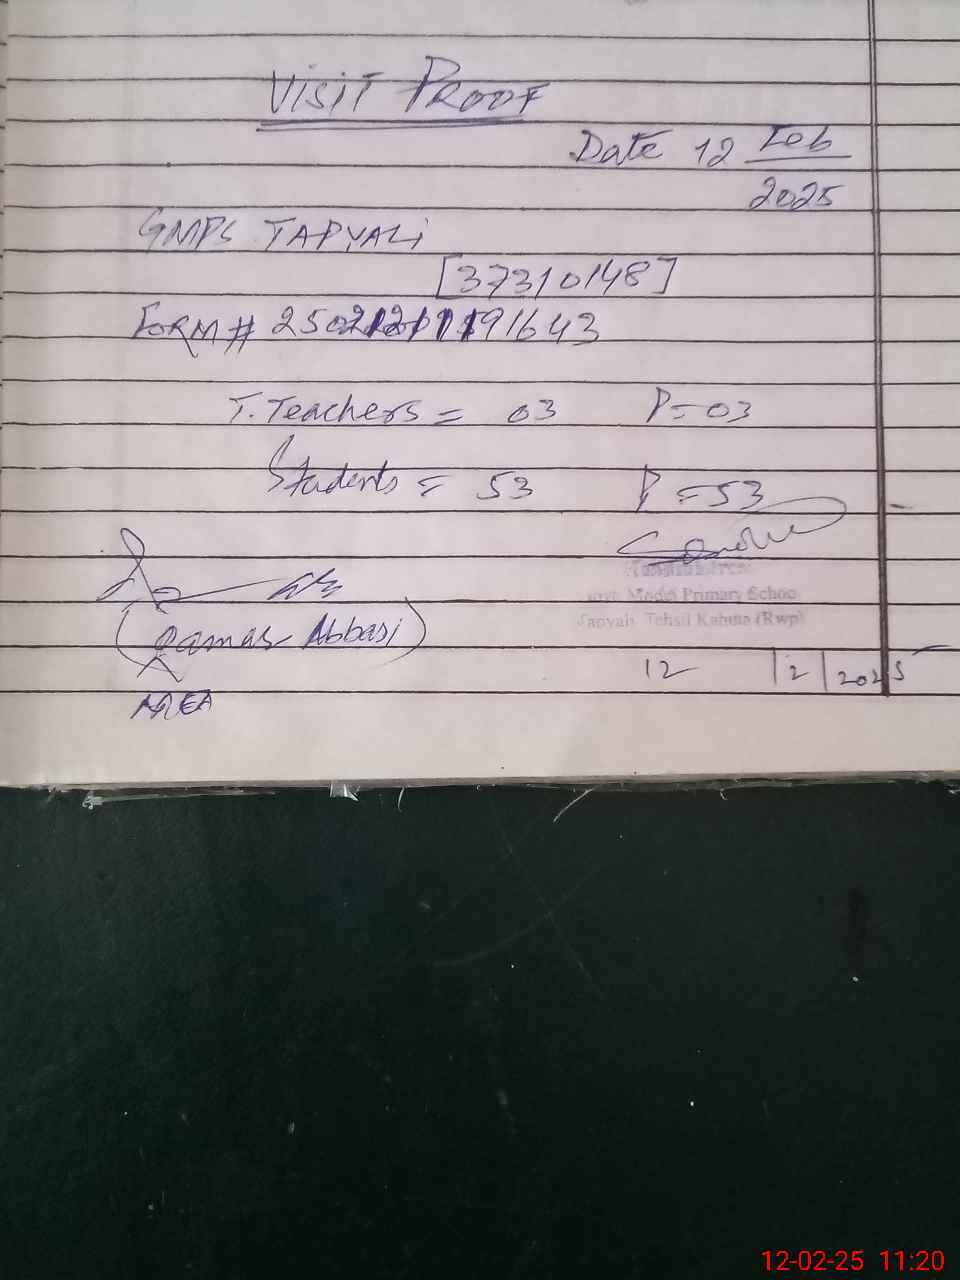 VISIT PROOF
Date 12 Feb
2025
GMPS TAPYALI
[37310148]
FORM #
T. Teachers = 03 P=03
Students = 53 P=53
Govt. Model Primary School
Tapyali Tehsil Kahuta (Rwp)
(Qamar Abbasi)
12 /2/2025
AREA
12-02-25 11:20